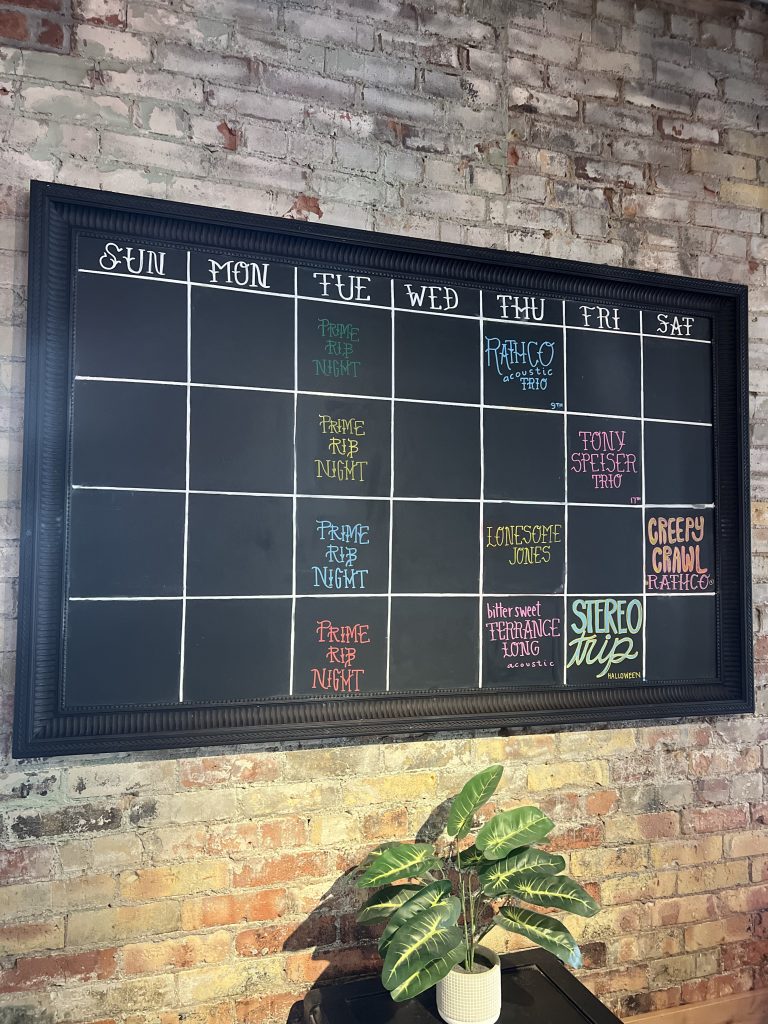 SUN MON TUE WED THU FRI SAT
PRIME
RIB
NIGHT
RATHCO
acoustic
TRIO
9TH
PRIME
RIB
NIGHT
TONY
SPEISER
TRIO
17TH
PRIME
RIB
NIGHT
LONESOME
JONES
CREEPY
CRAWL
RATHCO
PRIME
RIB
NIGHT
bitter sweet
TERRANCE
LONG
acoustic
STEREO
trip
HALLOWEEN